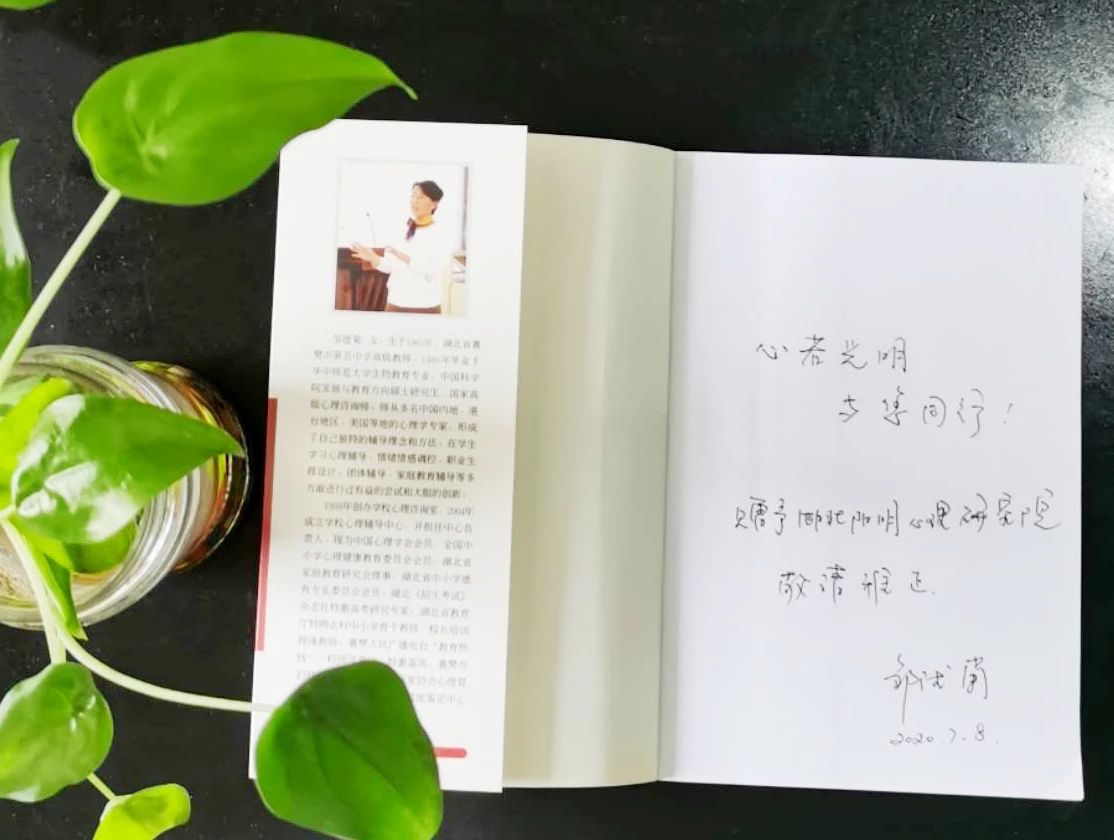 邹德菊，女，生于1963年，湖北省襄
樊市第五中学高级教师。1985年毕业于
华中师范大学生物教育专业，中国科学
院发展与教育方向硕士研究生，国家高
级心理咨询师。师从多名中国内地、港
台地区、美国等地的心理学专家，形成
了自己独特的辅导理念和方法。在学生
学习心理辅导、情绪情感调控、职业生
涯设计、团体辅导、家庭教育辅导等多
方面进行过有益的尝试和大胆的创新。
1999年创办学校心理咨询室，2004年
成立学校心理辅导中心，并担任中心负
责人。现为中国心理学会会员，全国中
小学心理健康教育委员会会员，湖北省
家庭教育研究会理事，湖北省中小学德
育专业委员会会员，湖北《招生考试》
杂志社特邀高考研究专家，湖北省教育
厅特聘农村中小学骨干教师、校长培训
授课教师，襄樊人民广播电台“教育热
线”、特邀嘉宾，襄樊市
家协会心理
能鉴定中心
心若光明
与您同行！
赠予 阳明心理研究院
敬请雅正
邹德菊
2020.7.8.